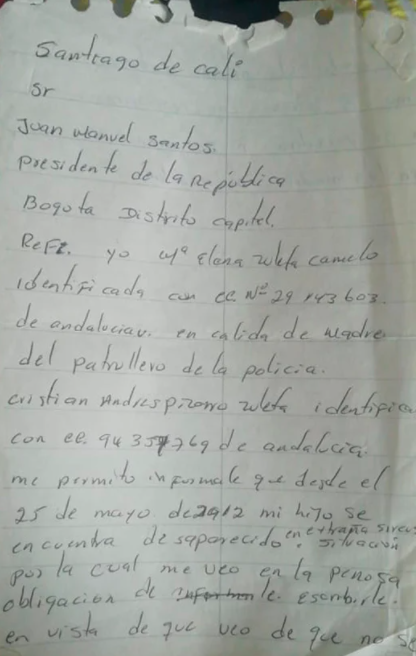 Santiago de cali
Sr
Juan Manuel Santos.
Presidente de la República
Bogota Distrito capitel.
ReFe. yo Mª Elena zuleta camelo
identificada con cc Nº 29 143 603.
de andalociav. en calida de madre
del patrullero de la policia.
cristian Andres pizorro zuleta identifica
con cc. 94 354769 de andalocia
me permito informale que desde el
25 de mayo de 2012 mi hijo se
encuentra desaparecido en extraña
situación
por la cual me veo en la penosa
obligacion de escribirle.
en vista de que veo de que no se